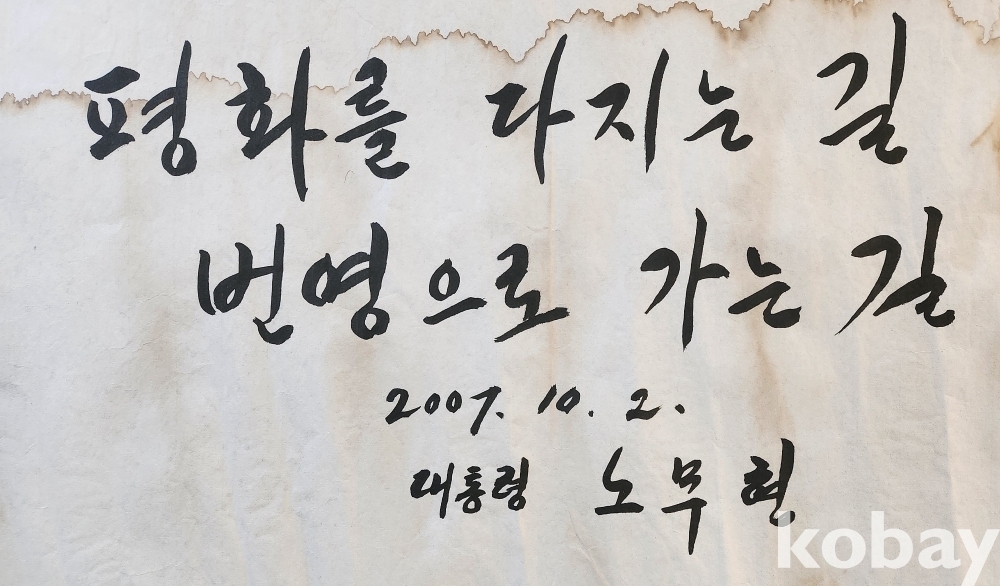 평화를 다지는 길
번영으로 가는 길
2007. 10. 2.
대통령 노무현
kobay